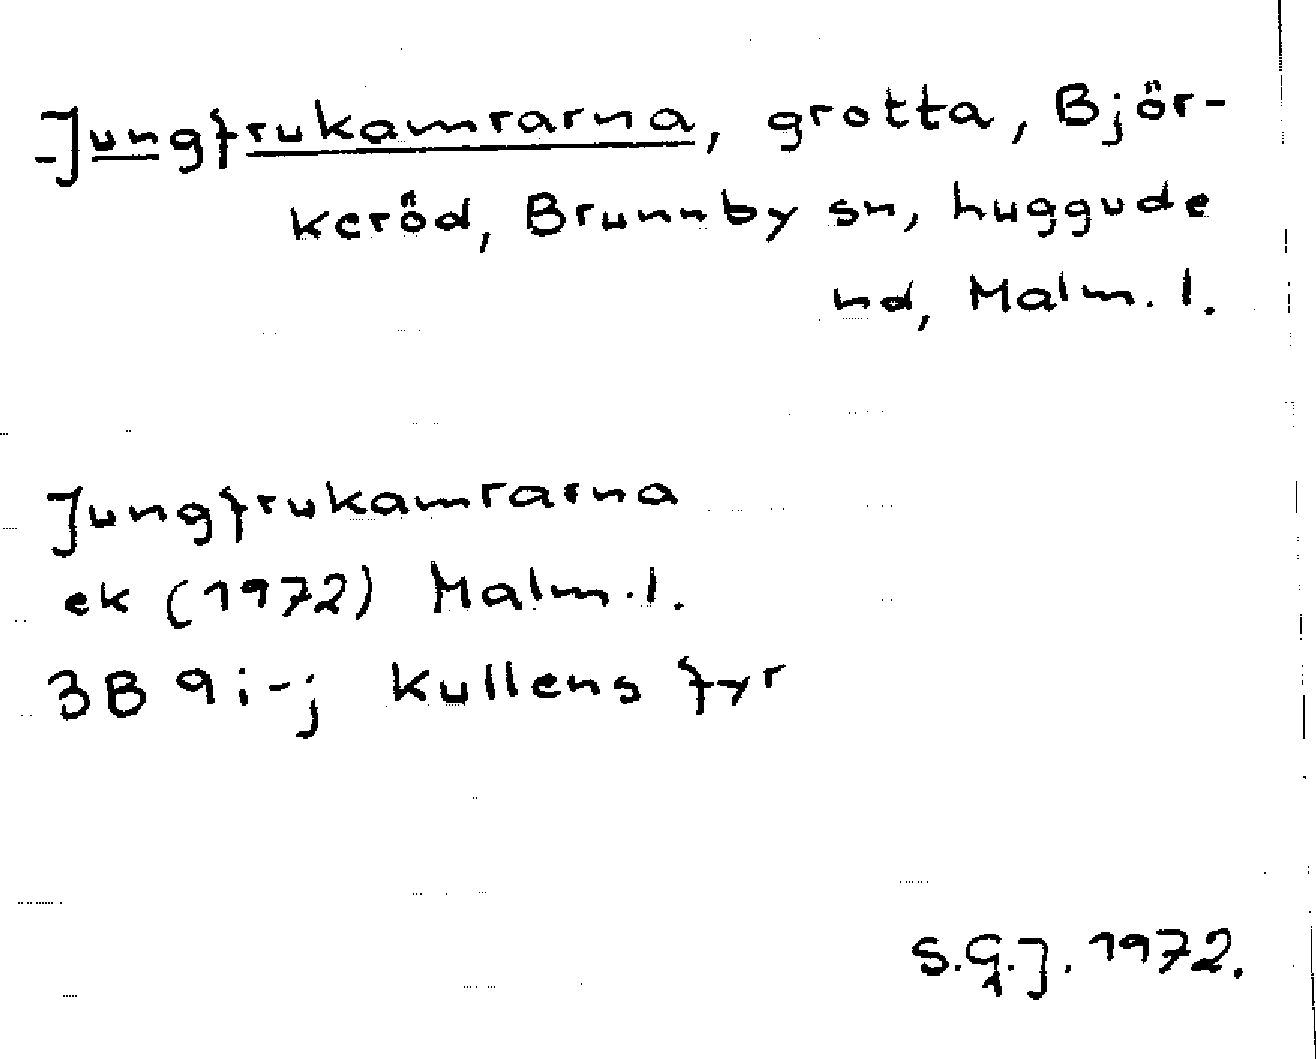 Jungfrukamrarna, grotta, Björ-
keröd, Brunnby sn, Luggude
hd, Malm. l.
Jungfrukamrarna
ek (1972) Malm. l.
3B 9i-j Kullens fyr
S.G.J. 1972.